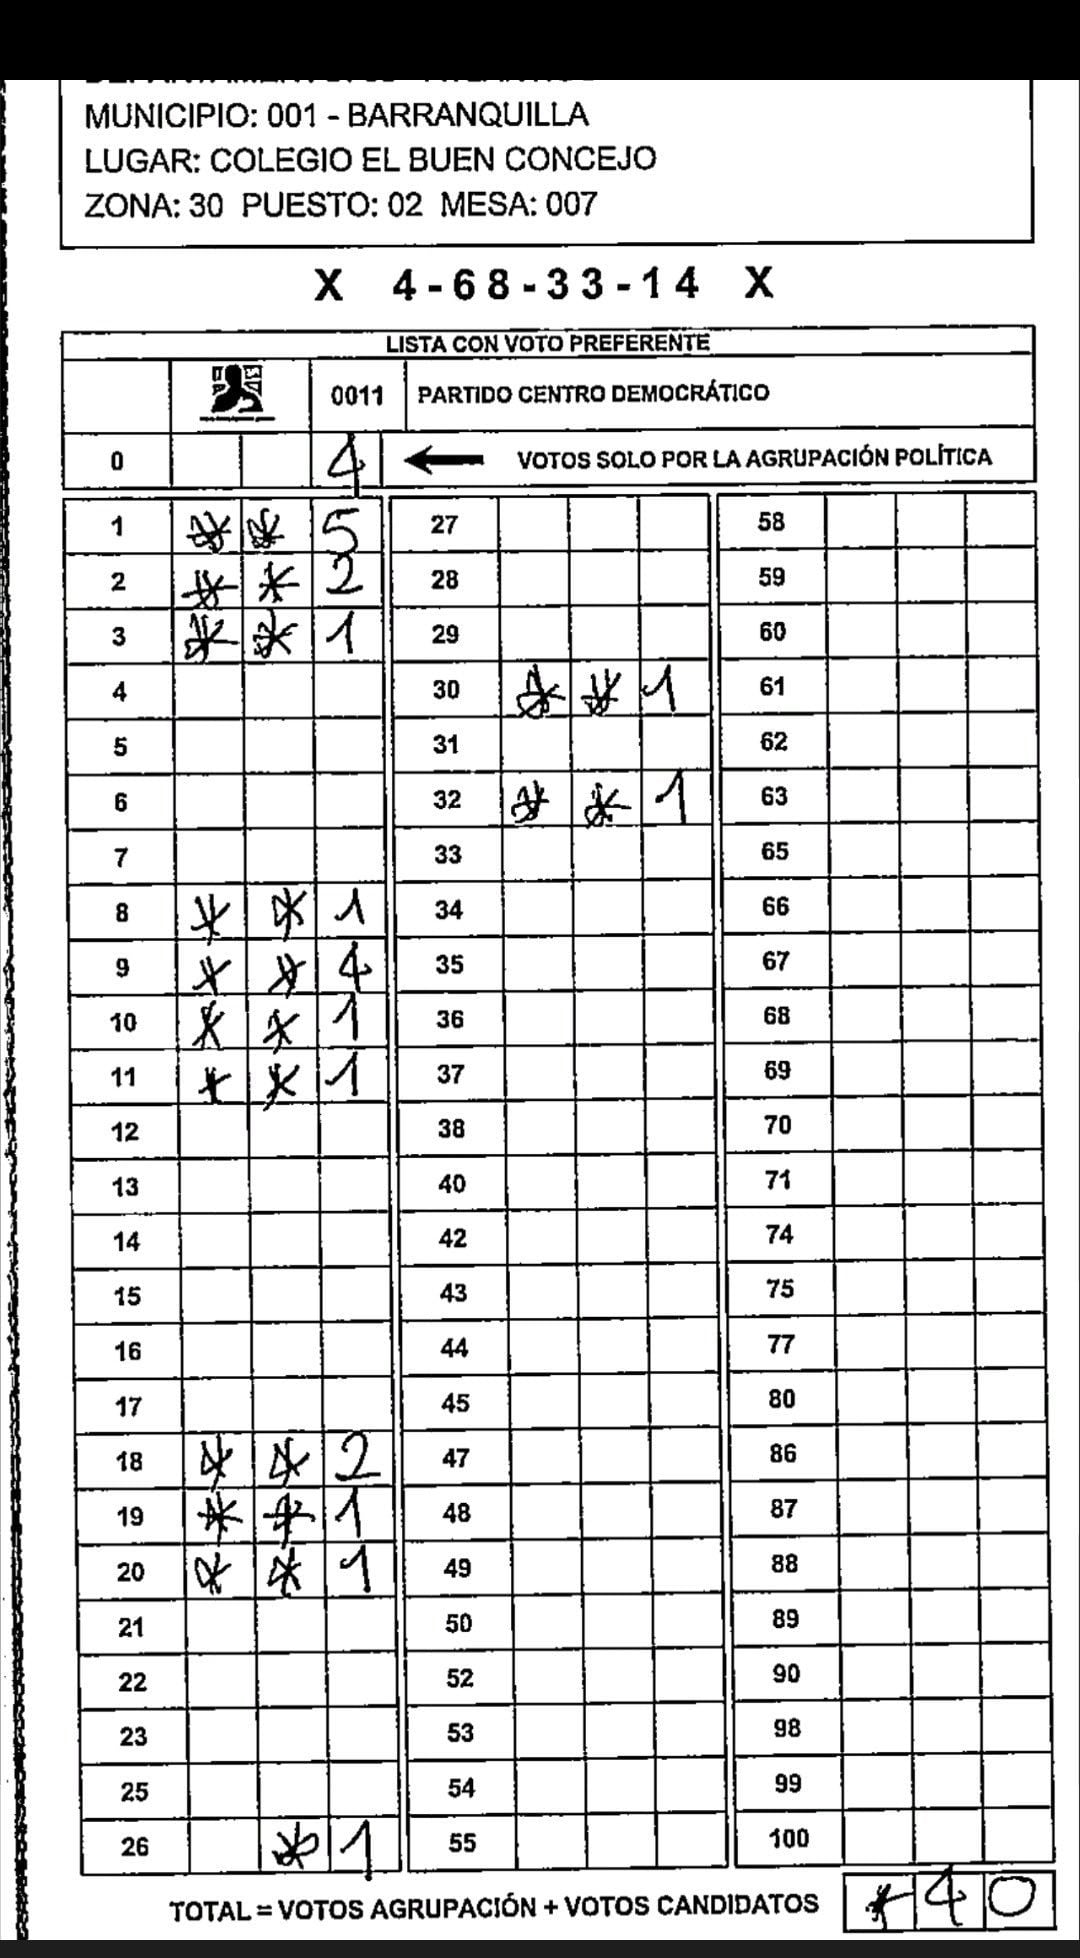 MUNICIPIO: 001 - BARRANQUILLA
LUGAR: COLEGIO EL BUEN CONCEJO
ZONA: 30 PUESTO: 02 MESA: 007
X 4-68-33-14 X
LISTA CON VOTO PREFERENTE
0011 PARTIDO CENTRO DEMOCRÁTICO
0 4 VOTOS SOLO POR LA AGRUPACIÓN POLÍTICA
1 * * 5 27 58
2 * * 2 28 59
3 * * 1 29 60
4 30 * * 1 61
5 31 62
6 32 * * 1 63
7 33 65
8 * * 1 34 66
9 * * 4 35 67
10 * * 1 36 68
11 * * 1 37 69
12 38 70
13 40 71
14 42 74
15 43 75
16 44 77
17 45 80
18 * * 2 47 86
19 * * 1 48 87
20 * * 1 49 88
21 50 89
22 52 90
23 53 98
25 54 99
26 * 1 55 100
TOTAL = VOTOS AGRUPACIÓN + VOTOS CANDIDATOS * 4 0